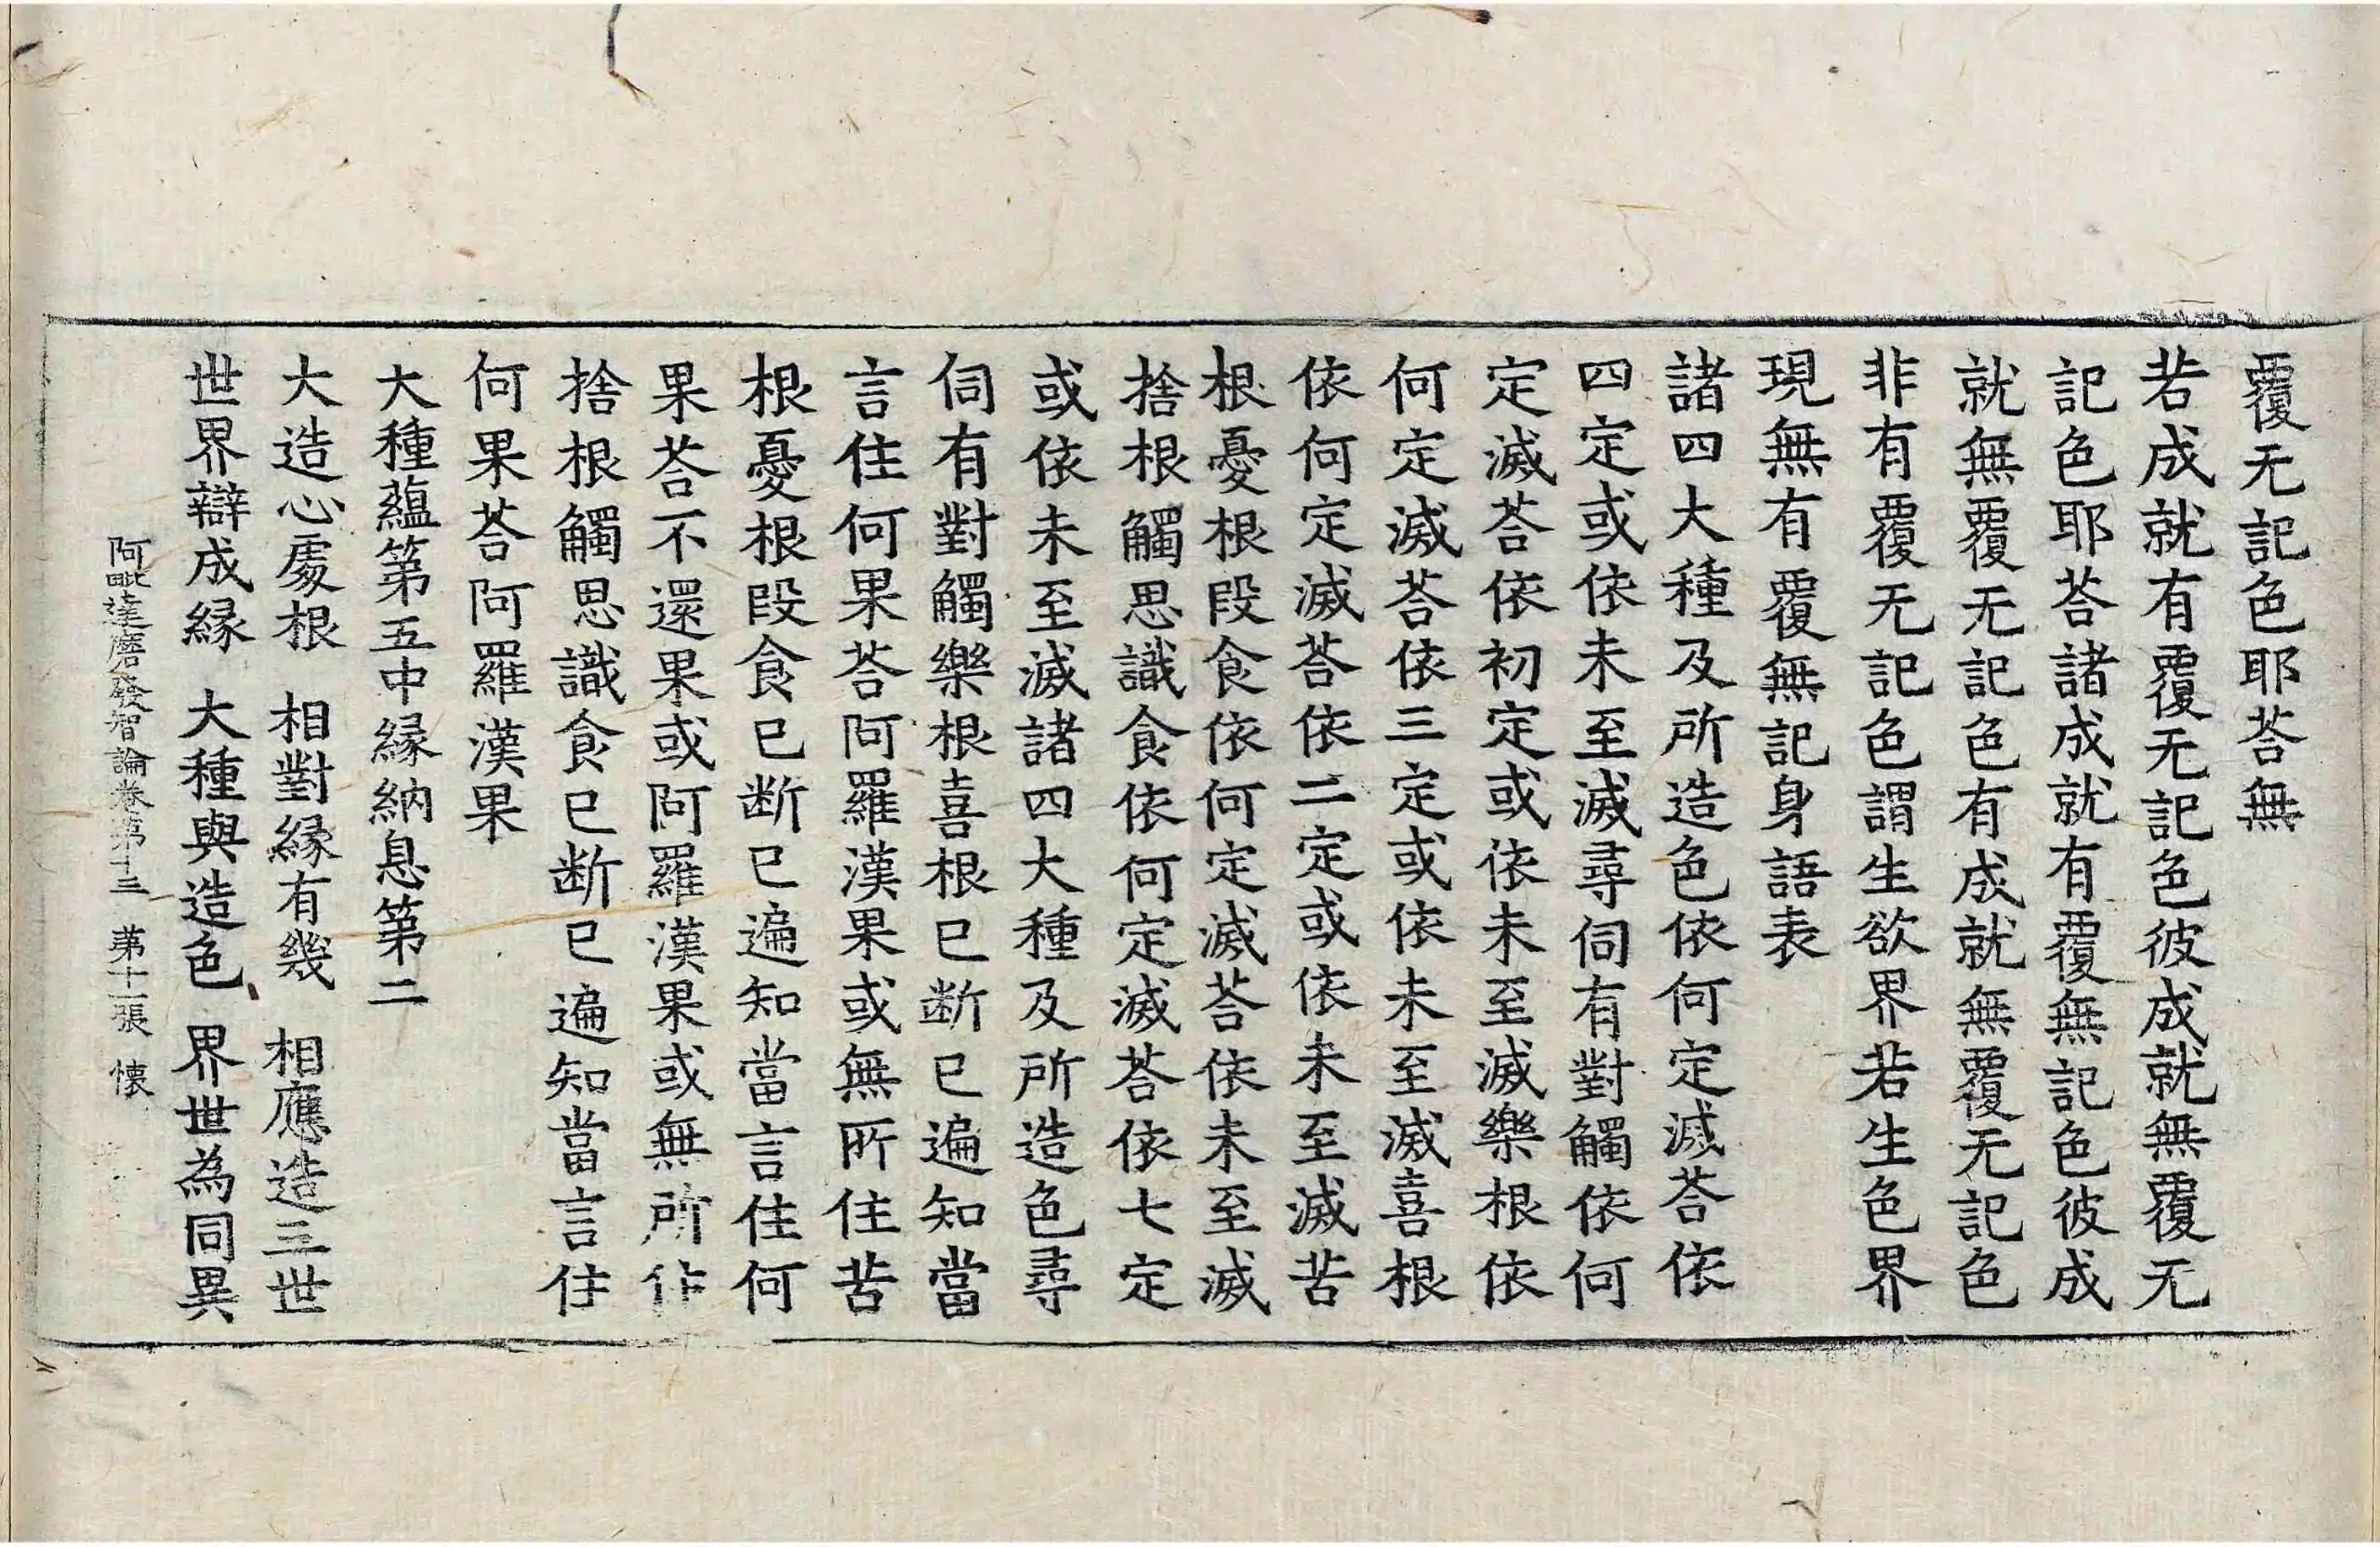 覆无記色耶荅無
若成就有覆无記色彼成就無覆无
記色耶荅諸成就有覆無記色彼成
就無覆无記色有成就無覆无記色
非有覆无記色謂生欲界若生色界
現無有覆無記身語表
諸四大種及所造色依何定滅荅依
四定或依未至滅尋伺有對觸依何
定滅荅依初定或依未至滅樂根依
何定滅荅依三定或依未至滅喜根
依何定滅荅依二定或依未至滅苦
根憂根段食依何定滅荅依未至滅
捨根觸思識食依何定滅荅依七定
或依未至滅諸四大種及所造色尋
伺有對觸樂根喜根已断已遍知當
言住何果荅阿羅漢果或無所住苦
根憂根段食已断已遍知當言住何
果荅不還果或阿羅漢果或無所住
捨根觸思識食已断已遍知當言住
何果荅阿羅漢果
大種蘊第五中縁納息第二
大造心處根　相對縁有幾　相應造三世
世界辯成縁　大種與造色　界世為同異
阿毗達磨發智論卷第十三　第十一張　懐